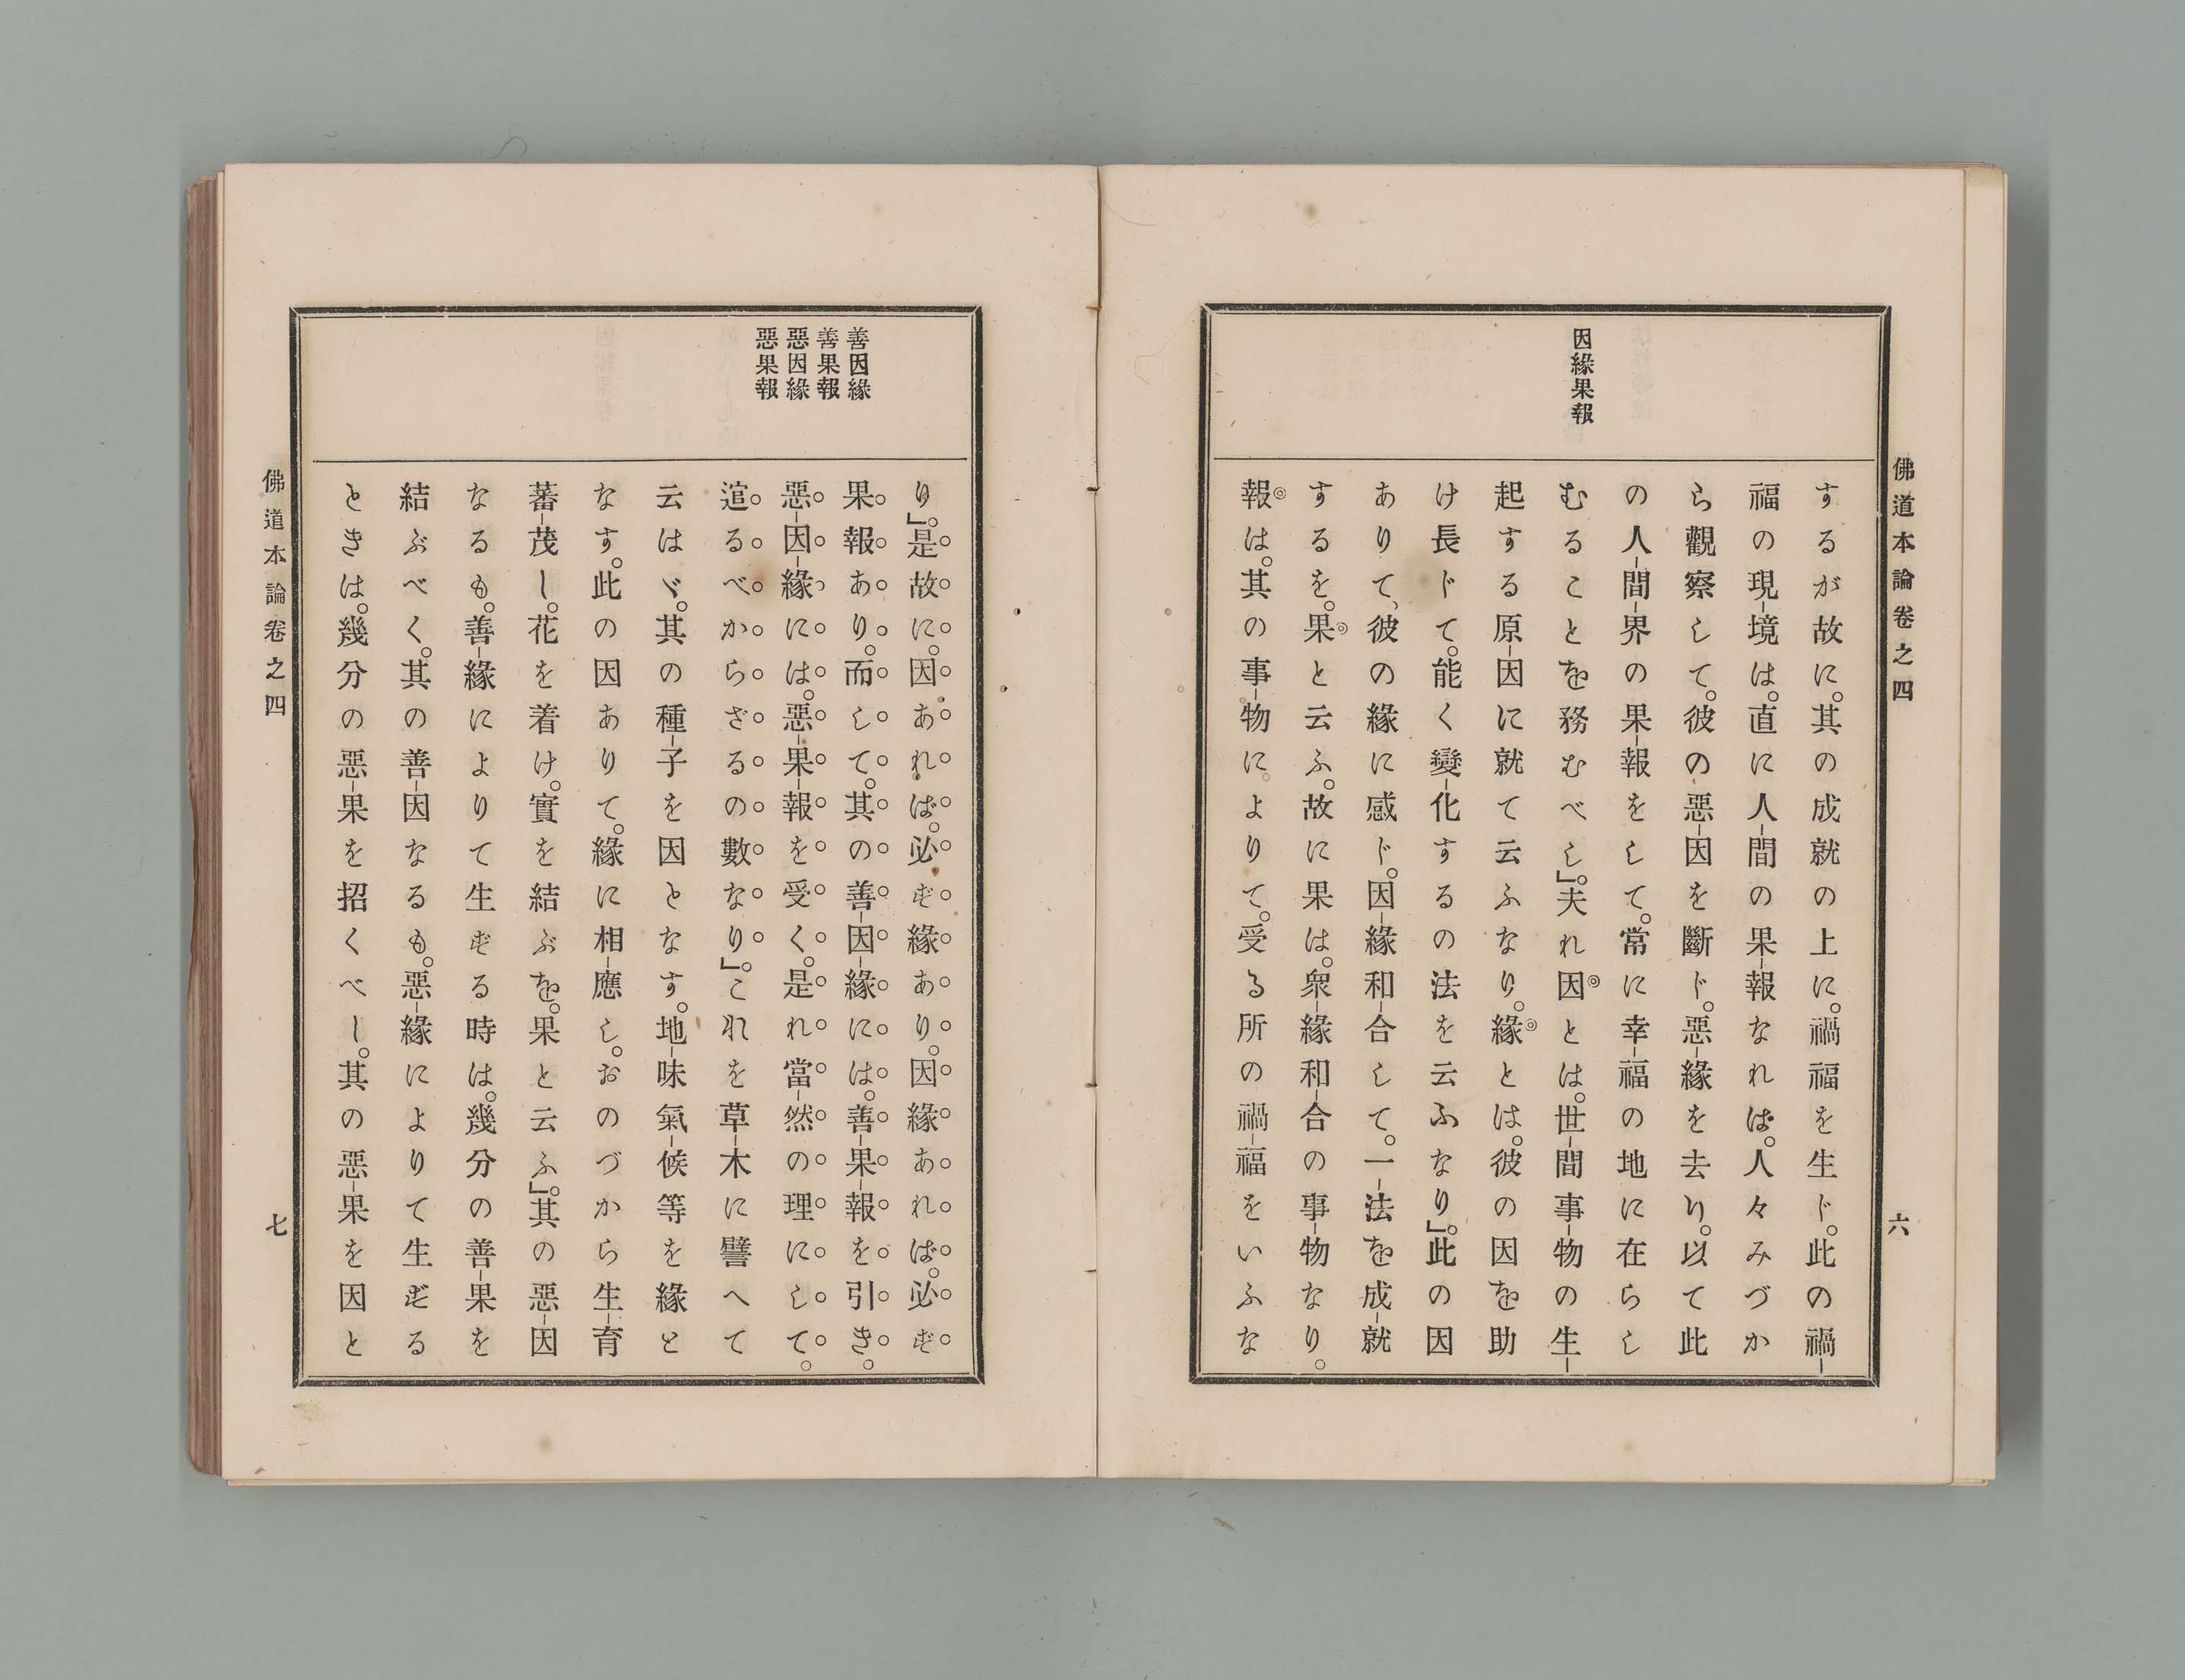 佛道本論卷之四
六
因緣果報
するが故に。其の成就の上に。禍福を生ド。此の禍-
福の現-境は。直に人-間の果-報なれば。人々みづか
ら觀察して。彼の惡-因を斷ド。惡-緣を去り。以て此
の人-間-界の果-報をして。常に幸-福の地に在らし
むることを務むべし。」夫れ因とは。世-間事-物の生-
起する原-因に就て云ふなり。緣とは。彼の因を助
け長ドて。能く變-化するの法を云ふなり。」此の因
ありて、彼の緣に感ド。因-緣和-合して。一-法を成-就
するを。果と云ふ。故に果は。衆-緣和-合の事-物なり。
報は。其の事-物に。よりて。受る所の禍-福をいふな
善因緣
善果報
惡因緣
惡果報
り。」是故に。因あれば。必ず緣あり。因緣あれば。必ず
果報あり。而して。其の善-因-緣には。善-果-報を引き。
惡-因-緣には。惡-果-報を受く。是れ當-然の理にして。
逭るべからざるの數なり。」これを草-木に譬へて
云はゞ。其の種-子を因となす。地-味氣-候等を緣と
なす。此の因ありて。緣に相-應し。おのづから生-育
蕃-茂し。花を着け。實を結ぶを。果と云ふ。」其の惡-因
なるも。善-緣によりて生ずる時は。幾分の善-果を
結ぶべく。其の善-因なるも。惡-緣によりて生ずる
ときは。幾分の惡-果を招くべし。其の惡-果を因と
佛道本論卷之四
七